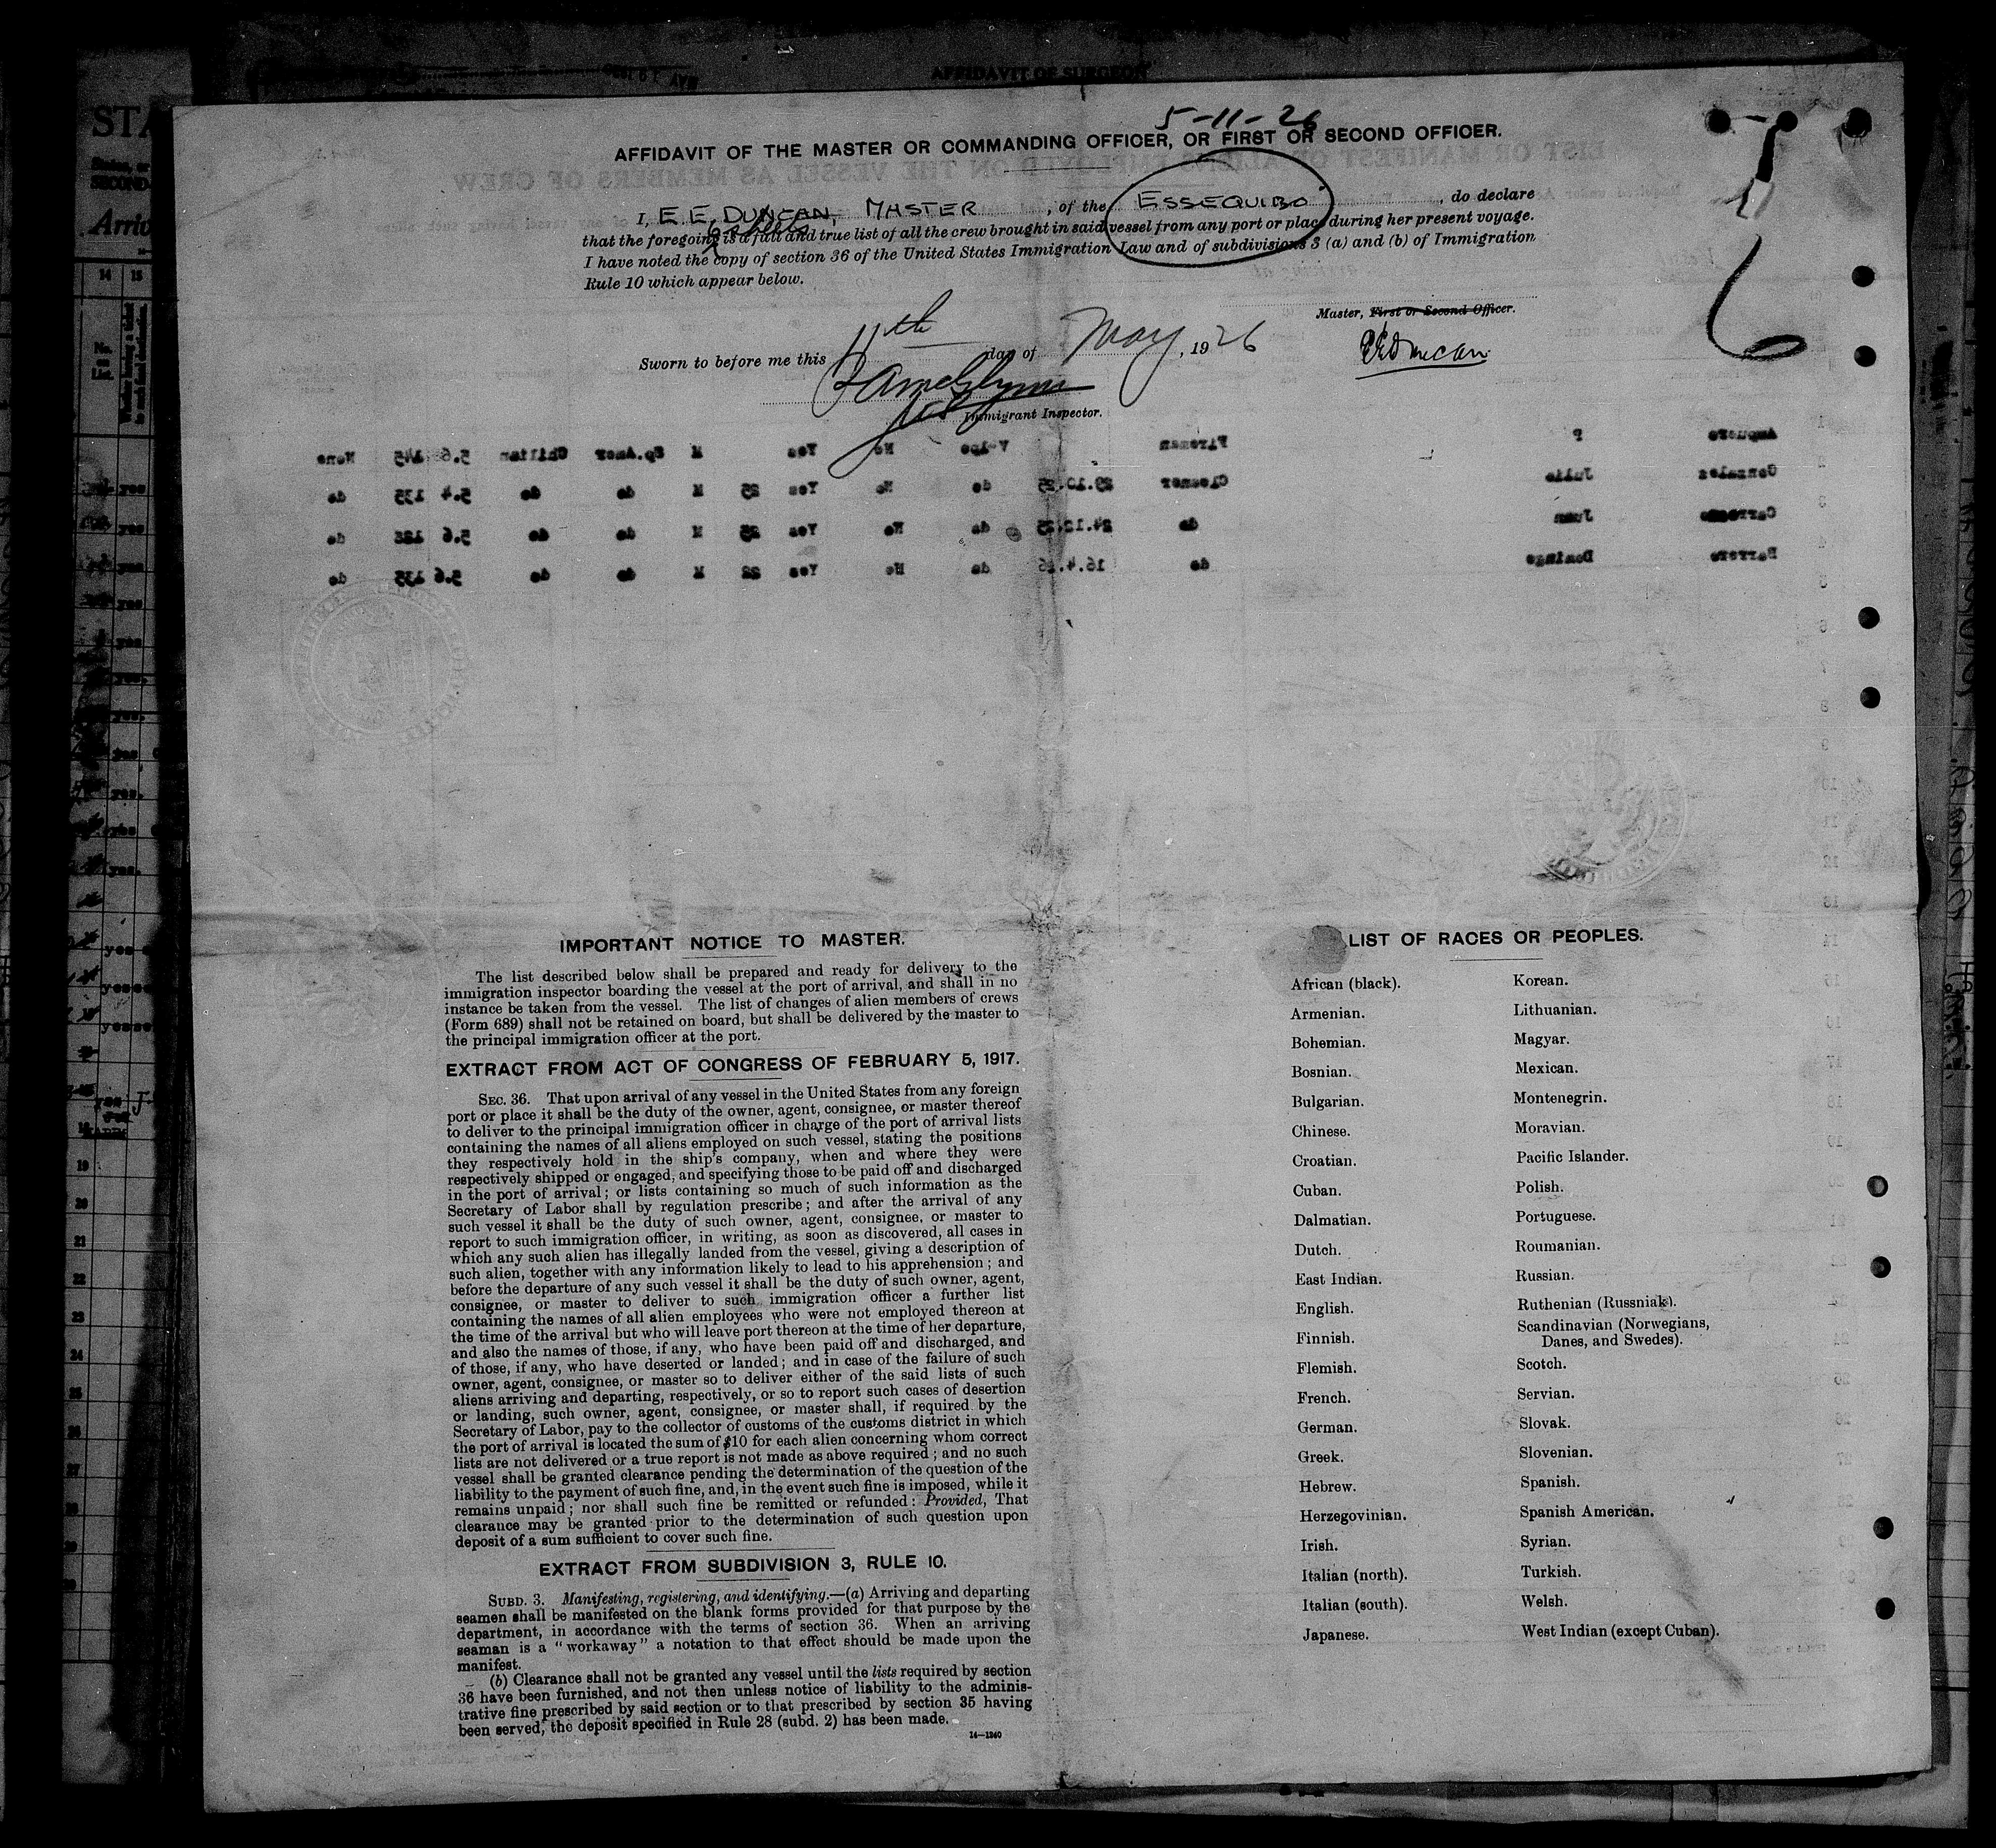 AFFIDAVIT OF SURGEON
5-11-26
AFFIDAVIT OF THE MASTER OR COMMANDING OFFICER, OR FIRST OR SECOND OFFICER.
I, E. E. DUNCAN, MASTER, of the ESSEQUIBO, do declare
6 sheets
that the foregoing is a full and true list of all the crew brought in said vessel from any port or place during her present voyage.
I have noted the copy of section 36 of the United States Immigration Law and of subdivisions 3 (a) and (b) of Immigration
Rule 10 which appear below.
6
Master, First or Second Officer.
Sworn to before me this 11th day of May, 1926
E E Duncan
Immigrant Inspector.
Ampuero P Fireman Valpo No Yes M Sp.Amer Chilian 5.6 145 None
Gonzales Julio Cleaner 29.10.25 do No Yes 25 M do do 5.4 135 do
Juan do 24.12.25 do No Yes 25 M do do 5.6 do
Barrera Domingo do 16.4.26 do No Yes 22 M do do 5.6 135 do
IMPORTANT NOTICE TO MASTER.
The list described below shall be prepared and ready for delivery to the
immigration inspector boarding the vessel at the port of arrival, and shall in no
instance be taken from the vessel. The list of changes of alien members of crews
(Form 689) shall not be retained on board, but shall be delivered by the master to
the principal immigration officer at the port.
EXTRACT FROM ACT OF CONGRESS OF FEBRUARY 5, 1917.
SEC. 36. That upon arrival of any vessel in the United States from any foreign
port or place it shall be the duty of the owner, agent, consignee, or master thereof
to deliver to the principal immigration officer in charge of the port of arrival lists
containing the names of all aliens employed on such vessel, stating the positions
they respectively hold in the ship's company, when and where they were
respectively shipped or engaged, and specifying those to be paid off and discharged
in the port of arrival; or lists containing so much of such information as the
Secretary of Labor shall by regulation prescribe; and after the arrival of any
such vessel it shall be the duty of such owner, agent, consignee, or master to
report to such immigration officer, in writing, as soon as discovered, all cases in
which any such alien has illegally landed from the vessel, giving a description of
such alien, together with any information likely to lead to his apprehension; and
before the departure of any such vessel it shall be the duty of such owner, agent,
consignee, or master to deliver to such immigration officer a further list
containing the names of all alien employees who were not employed thereon at
the time of the arrival but who will leave port thereon at the time of her departure,
and also the names of those, if any, who have been paid off and discharged, and
of those, if any, who have deserted or landed; and in case of the failure of such
owner, agent, consignee, or master so to deliver either of the said lists of such
aliens arriving and departing, respectively, or so to report such cases of desertion
or landing, such owner, agent, consignee, or master shall, if required by the
Secretary of Labor, pay to the collector of customs of the customs district in which
the port of arrival is located the sum of $10 for each alien concerning whom correct
lists are not delivered or a true report is not made as above required; and no such
vessel shall be granted clearance pending the determination of the question of the
liability to the payment of such fine, and, in the event such fine is imposed, while it
remains unpaid; nor shall such fine be remitted or refunded: Provided, That
clearance may be granted prior to the determination of such question upon
deposit of a sum sufficient to cover such fine.
EXTRACT FROM SUBDIVISION 3, RULE 10.
SUBD. 3. Manifesting, registering, and identifying.—(a) Arriving and departing
seamen shall be manifested on the blank forms provided for that purpose by the
department, in accordance with the terms of section 36. When an arriving
seaman is a "workaway" a notation to that effect should be made upon the
manifest.
(b) Clearance shall not be granted any vessel until the lists required by section
36 have been furnished, and not then unless notice of liability to the adminis-
trative fine prescribed by said section or to that prescribed by section 35 having
been served, the deposit specified in Rule 28 (subd. 2) has been made.
14—1240
LIST OF RACES OR PEOPLES.
African (black).
Armenian.
Bohemian.
Bosnian.
Bulgarian.
Chinese.
Croatian.
Cuban.
Dalmatian.
Dutch.
East Indian.
English.
Finnish.
Flemish.
French.
German.
Greek.
Hebrew.
Herzegovinian.
Irish.
Italian (north).
Italian (south).
Japanese.
Korean.
Lithuanian.
Magyar.
Mexican.
Montenegrin.
Moravian.
Pacific Islander.
Polish.
Portuguese.
Roumanian.
Russian.
Ruthenian (Russniak).
Scandinavian (Norwegians,
Danes, and Swedes).
Scotch.
Servian.
Slovak.
Slovenian.
Spanish.
Spanish American.
Syrian.
Turkish.
Welsh.
West Indian (except Cuban).